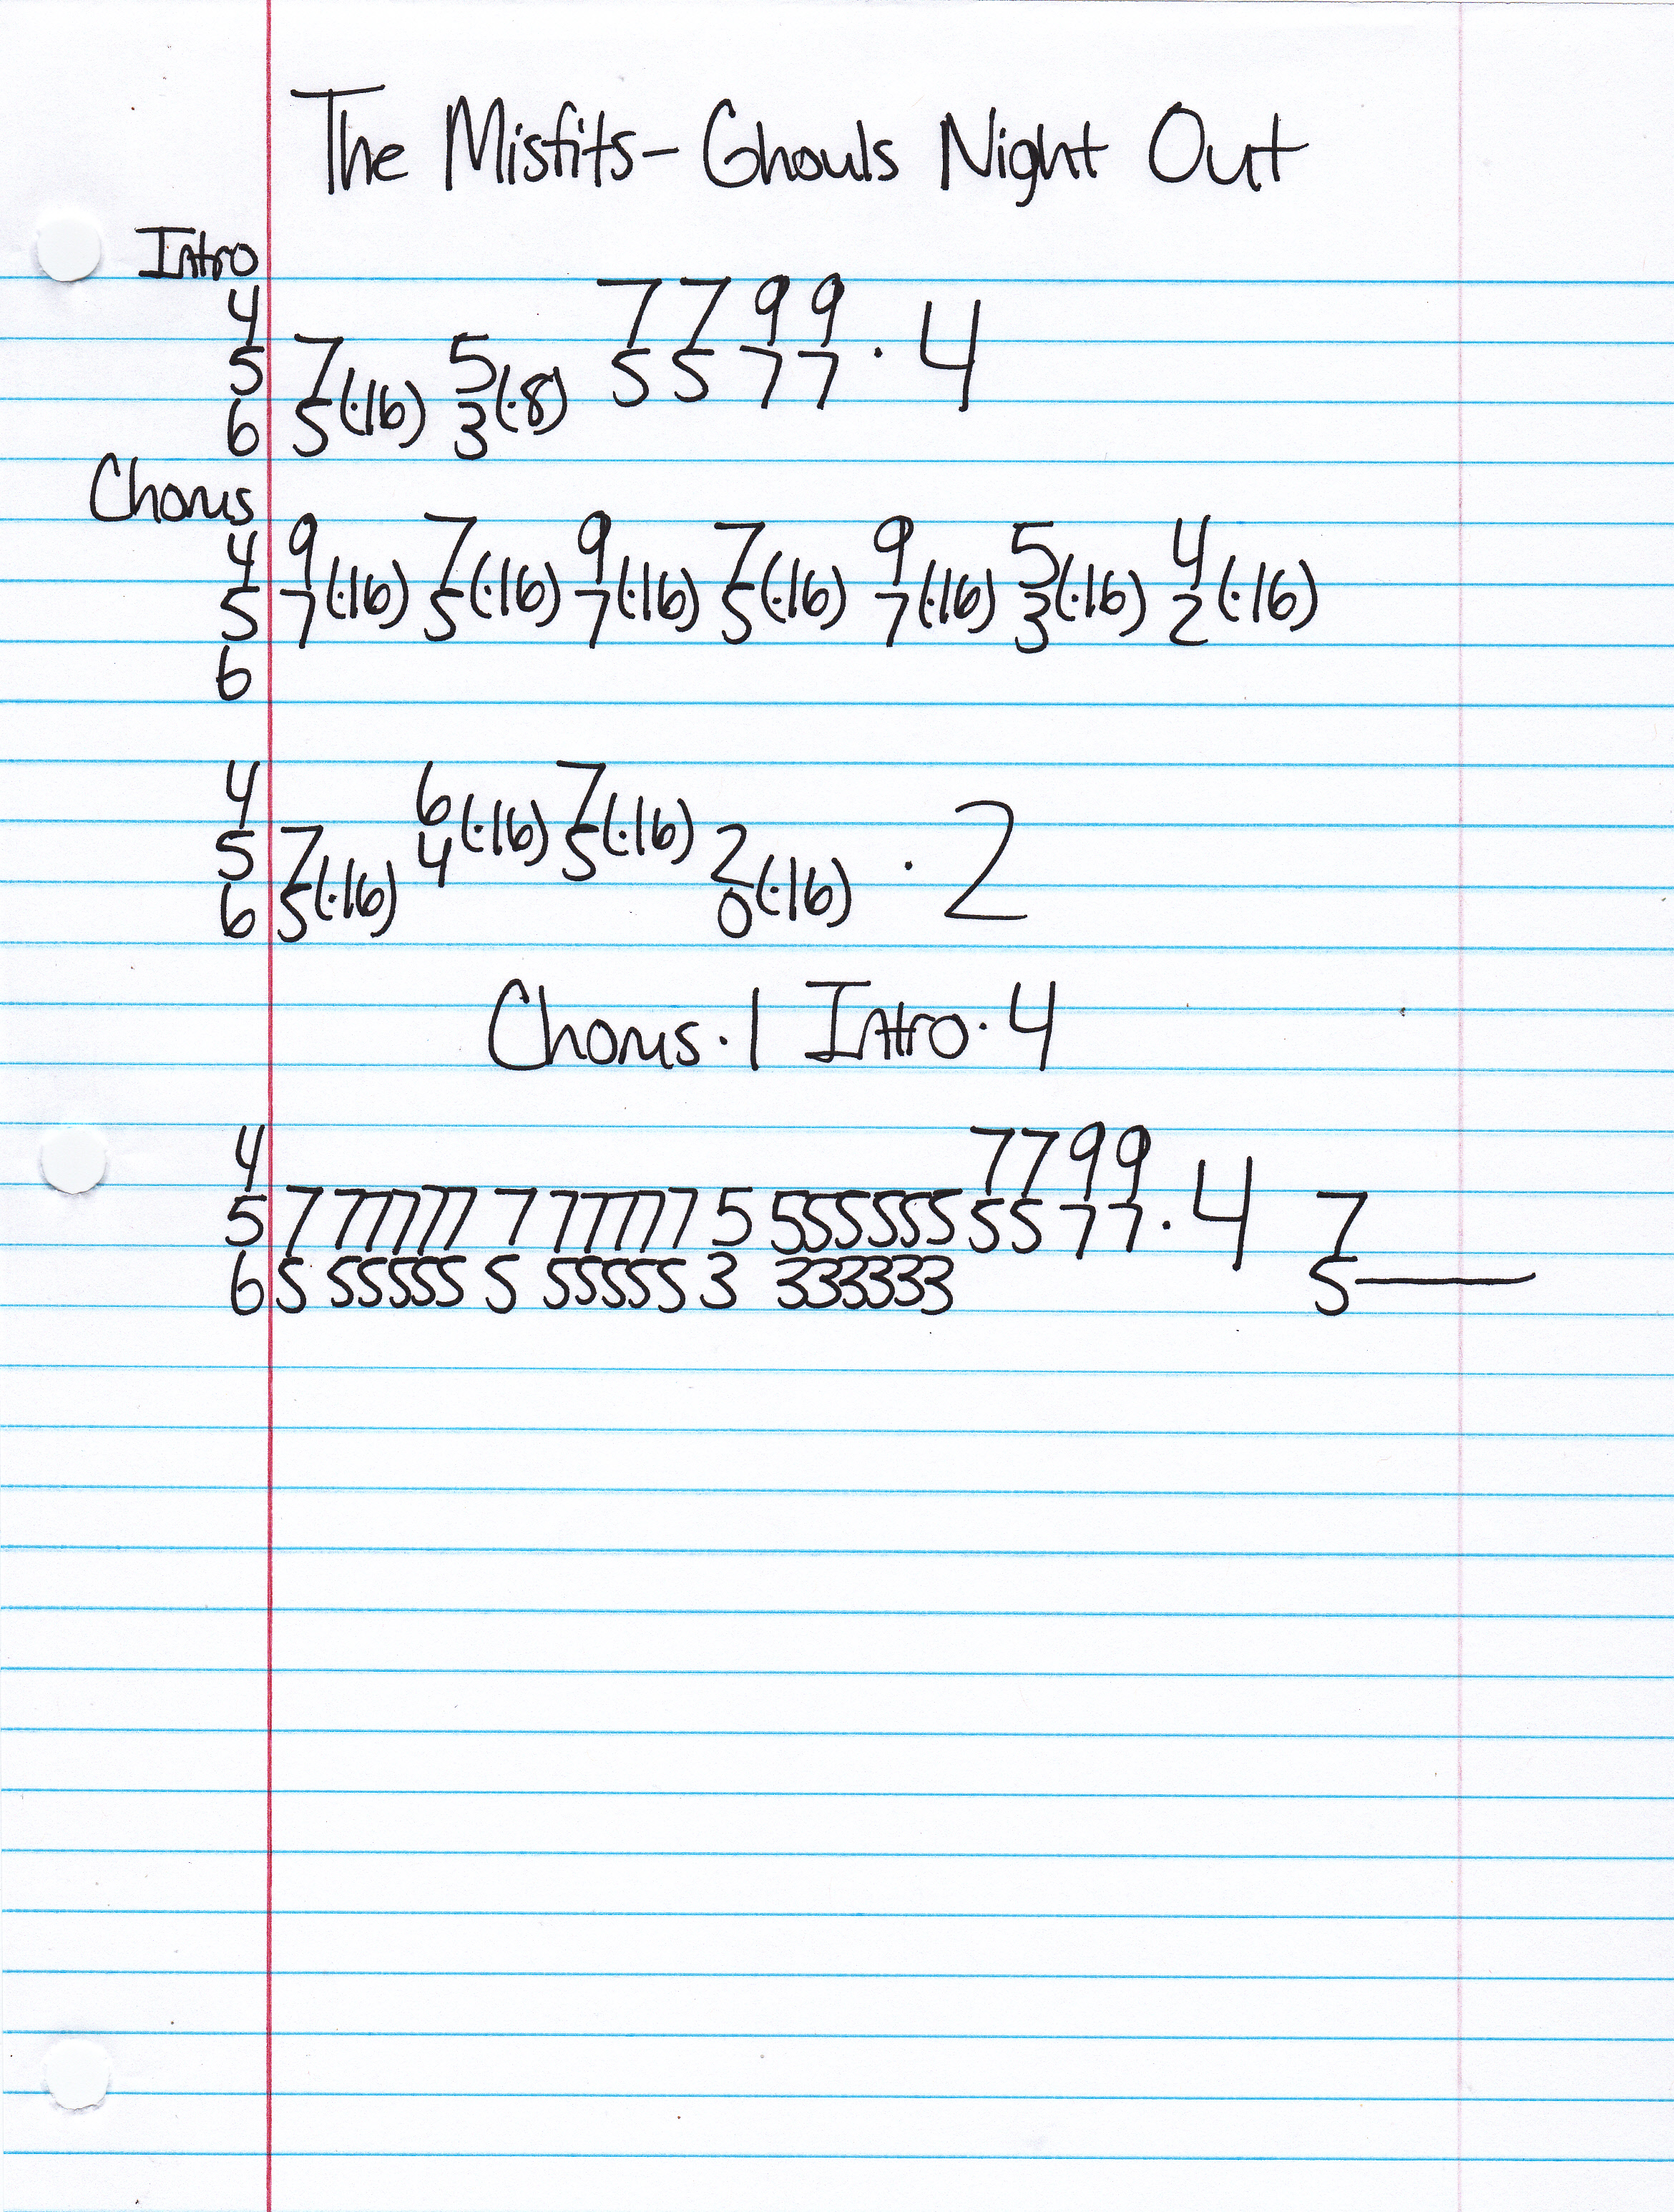 The Misfits- Ghouls Night Out
Intro
4 7 7 9 9
5 7 5 5 5 7 7 · 4
6 5(·16) 3(·8)
Chorus
4 9 7 9 7 9 5 4
5 7(·16) 5(·16) 7(·16) 5(·16) 7(·16) 3(·16) 2(·16)
6
4 6 7
5 7 4(·16) 5(·16) 2 · 2
6 5(·16) 0(·16)
Chorus·1 Intro·4
4 7799
5 7 77777 7 77777 5 555555 5577·4 7
6 5 55555 5 55555 3 333333 5—